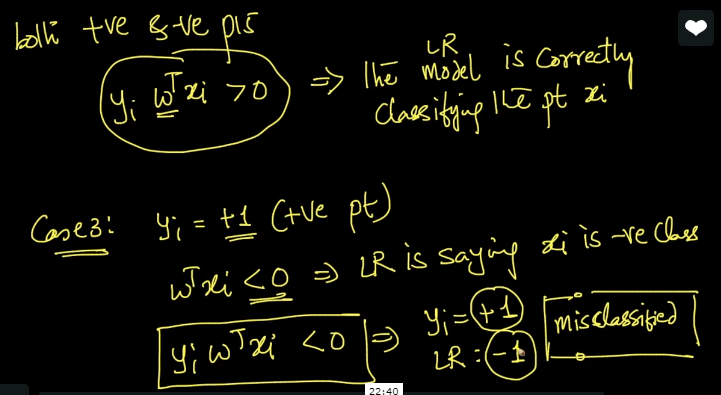 both +ve & -ve pts
yᵢ wᵀxᵢ > 0 ⇒ the LR model is correctly
classifying the pt xᵢ
Case3: yᵢ = +1 (+ve pt)
wᵀxᵢ < 0 ⇒ LR is saying xᵢ is -ve class
yᵢ wᵀxᵢ < 0 ⇒ yᵢ = +1 misclassified
LR : -1
22:40